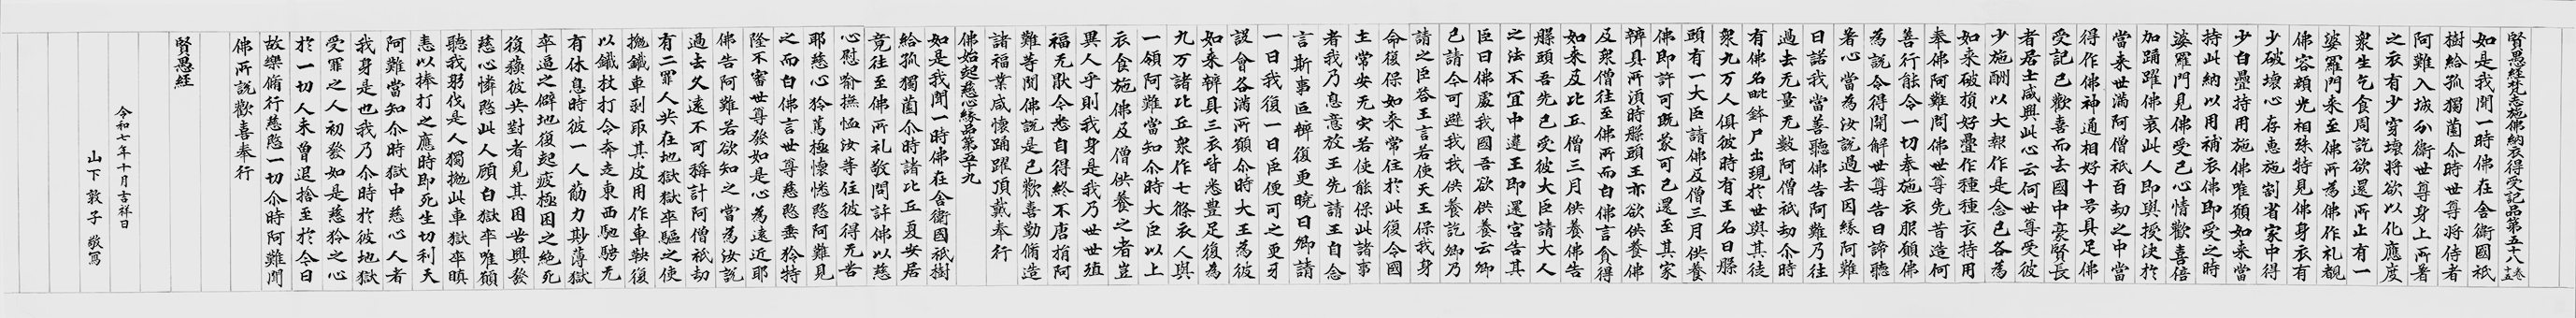 賢愚経梵志施佛納衣得受記品第五十八 巻十五
如是我聞一時佛在舍衛國祇
樹給孤獨薗尒時世尊將侍者
阿難入城分衛世尊身上所著
之衣有少穿壊將欲以化應度
衆生乞食周訖欲還所止有一
婆羅門来至佛所為佛作礼覩
佛容顔光相殊特見佛身衣有
少破壊心存惠施割省家中得
少白疊持用施佛唯願如来當
持此納以用補衣佛即受之時
婆羅門見佛受已心情歡喜倍
加踊躍佛哀此人即與授决於
當来世滿阿僧祇百劫之中當
得作佛神通相好十号具足佛
受記已歡喜而去國中豪賢長
者居士咸興此心云何世尊受彼
少施酬以大報作是念已各為
如来破損好疊作種種衣持用
奉佛阿難問佛世尊先昔造何
善行能令一切奉施衣服願佛
為說令得開解世尊告曰諦聽
著心當為汝說過去因緣阿難
曰諾我當善聽佛告阿難乃往
過去无量无數阿僧祇劫尒時
有佛名毗鉢尸出現於世與其徒
衆九万人俱彼時有王名曰槃
頭有一大臣請佛及僧三月供養
佛即許可既蒙可已還至其家
辦具所湏時槃頭王亦欲供養佛
及衆僧往至佛所而白佛言貪得
如来及比丘僧三月供養佛告
槃頭吾先已受彼大臣請大人
之法不冝中違王即還宫告其
臣曰佛處我國吾欲供養云卿
已請今可避我我供養訖卿乃
請之臣荅王言若使天王保我身
命復保如来常住於此復令國
土常安无灾若使能保此諸事
者我乃息意放王先請王自念
言斯事叵辦復更曉曰卿請
一日我復一日臣便可之更牙
設會各滿所願尒時大王為彼
如来辦具三衣皆悉豊足復為
九万諸比丘衆作七條衣人與
一領阿難當知尒時大臣以上
衣食施佛及僧供養之者豈
異人乎則我身是我乃世世殖
福无猒今悉自得終不唐捐阿
難等聞佛說是已歡喜勤脩造
諸福業咸懐踊躍頂戴奉行
佛始起慈心緣品第五十九
如是我聞一時佛在舍衛國祇樹
給孤獨薗尒時諸比丘夏安居
竟往至佛所礼敬問訊佛以慈
心慰喻撫恤汝等住彼得无苦
耶慈心矜篤極懐憐愍阿難見
之而白佛言世尊慈愍垂矜特
隆不審世尊發如是心為遠近耶
佛告阿難若欲知之當為汝說
過去久遠不可稱計阿僧祇劫
有二罪人共在地獄獄卒驅之使
挽鐵車剥取其皮用作車鞅復
以鐵杖打令奔走東西馳騁无
有休息時彼一人筋力尠薄獄
卒逼之僻地復起疲極困乏絶死
復穌彼共對者見其困苦興發
慈心憐愍此人願白獄卒唯願
聽我躬代是人獨挽此車獄卒瞋
恚以捧打之應時即死生忉利天
阿難當知尒時獄中慈心人者
我身是也我乃尒時於彼地獄
受罪之人初發如是慈矜之心
於一切人未曽退捨至於今日
故樂脩行慈愍一切尒時阿難聞
佛所說歡喜奉行
賢愚経
令和七年十月吉祥日
山下敦子 敬寫